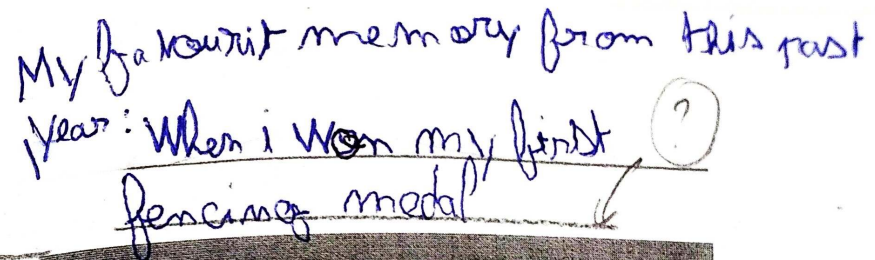 My favourit memory from this past
year: When i won my first ?
fencing medal